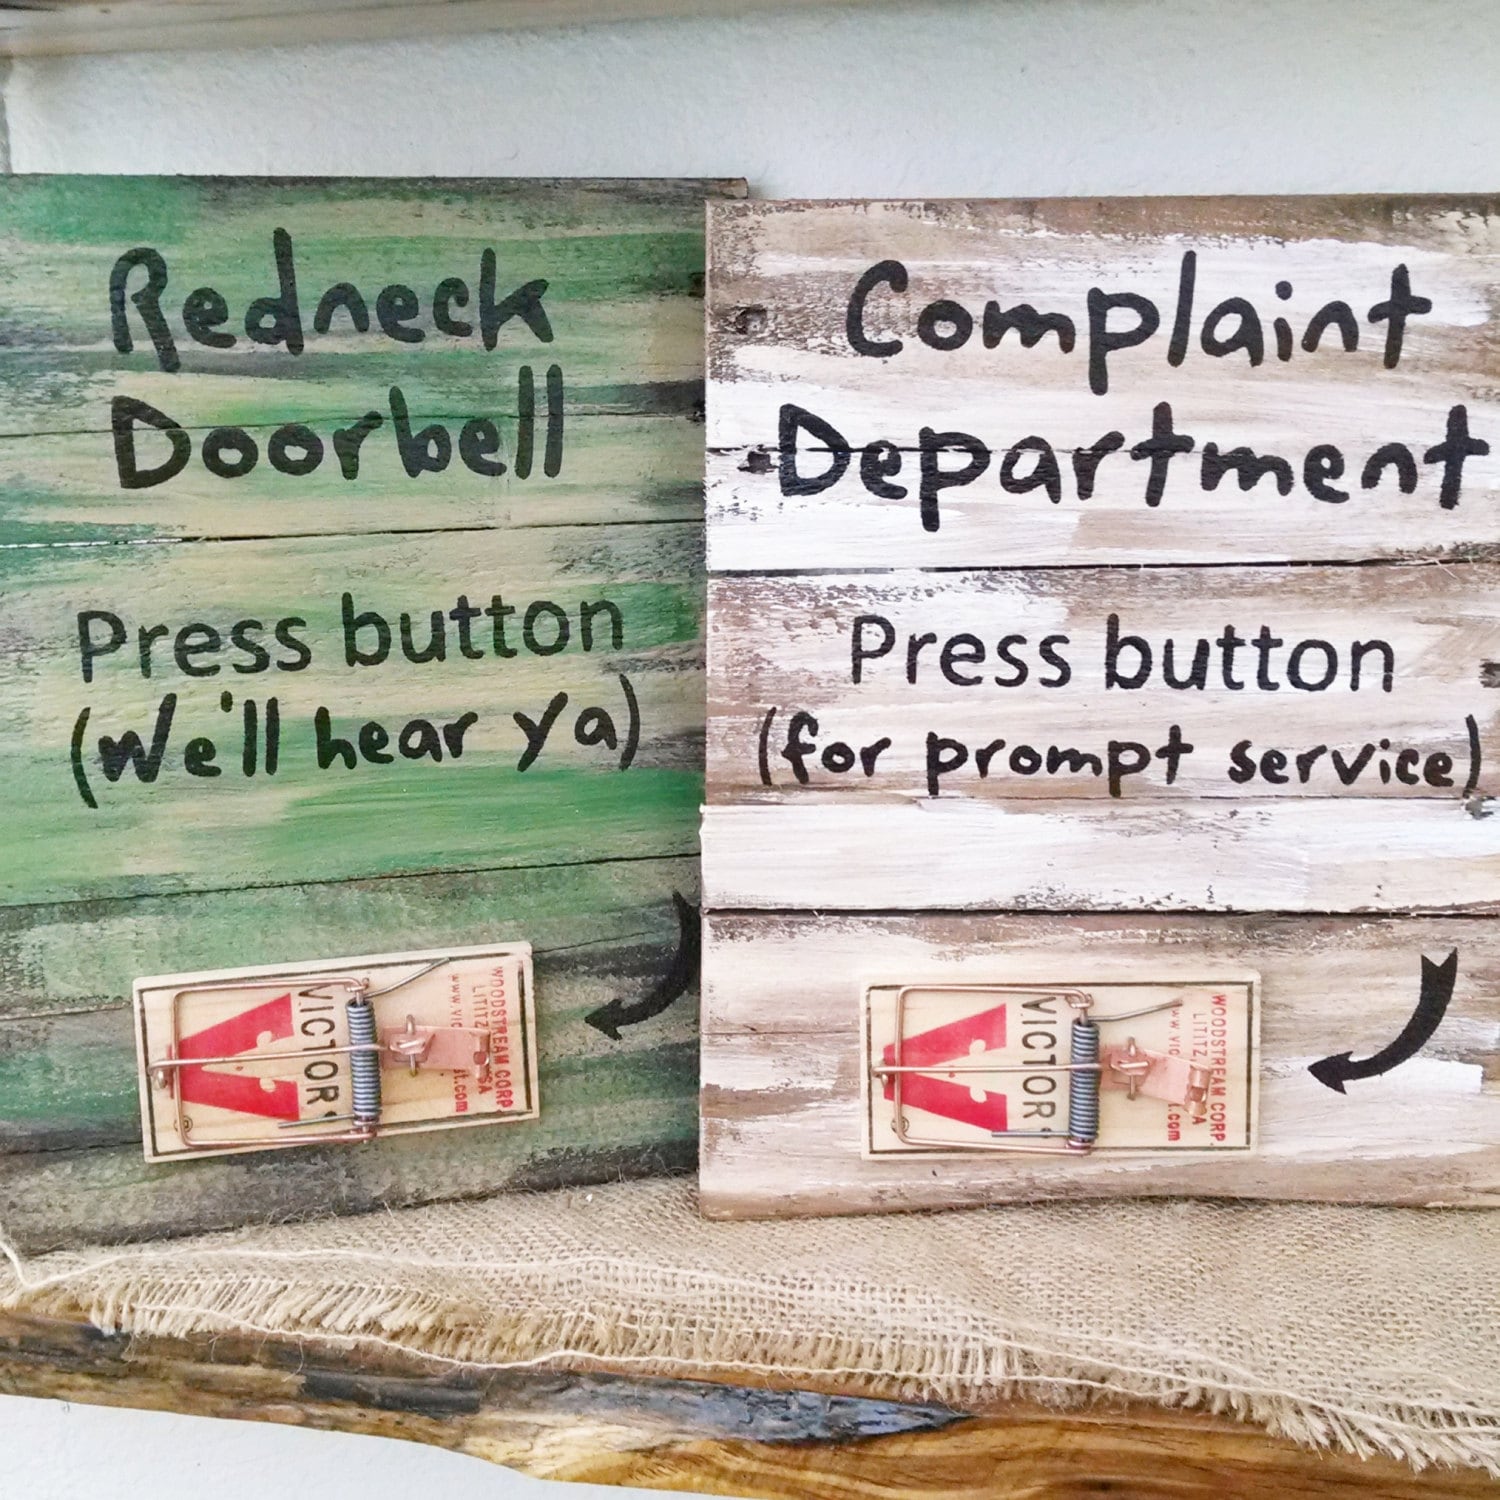 Redneck
Doorbell
Press button
(We'll hear ya)
VICTOR
WOODSTREAM CORP.
LITITZ,
www.vic
.com
Complaint
Department
Press button
(for prompt service)
VICTOR
WOODSTREAM CORP.
LITITZ,
www.vic
.com